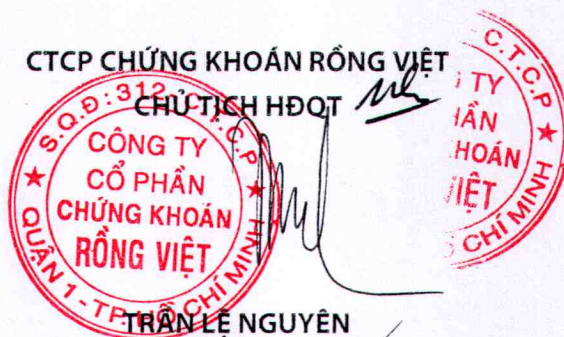 CTCP CHỨNG KHOÁN RỒNG VIỆT
CHỦ TỊCH HĐQT
S.Q.Đ: 312 C.T.C.P
CÔNG TY
CỔ PHẦN
CHỨNG KHOÁN
RỒNG VIỆT
QUẬN 1 - TP. HỒ CHÍ MINH
C.T.C.P
TY
HẦN
HOÁN
IỆT
CHÍ MINH
TRẦN LỆ NGUYÊN